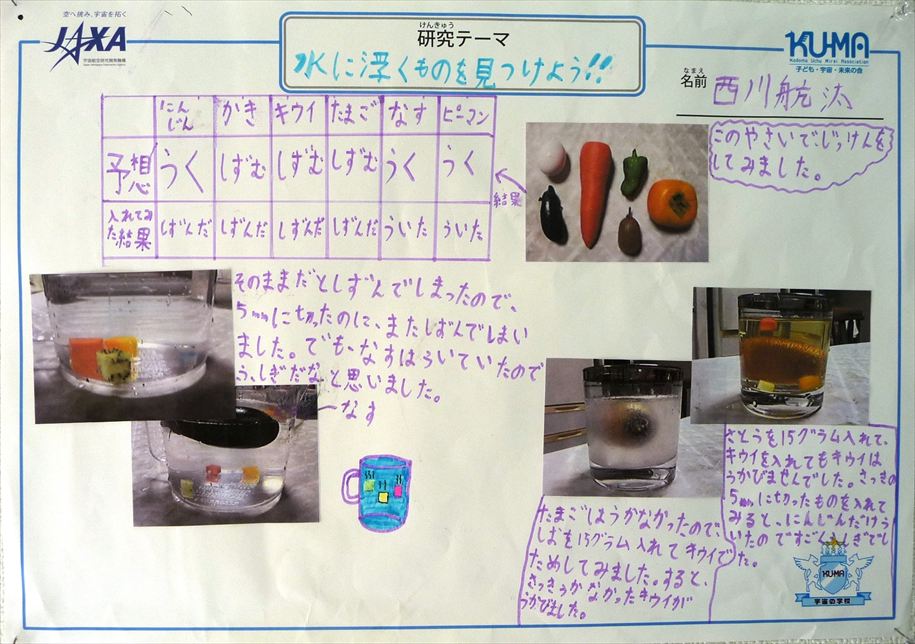 空へ挑み、宇宙を拓く
JAXA
宇宙航空研究開発機構
けんきゅう
研究テーマ
水に浮くものを見つけよう!!
KU-MA
Kodomo Uchu Mirai Association
子ども・宇宙・未来の会
なまえ
名前 西川航汰
にんじん かき キウイ たまご なす ピーマン
予想 うく しずむ しずむ しずむ うく うく
入れてみた結果 しずんだ しずんだ しずんだ しずんだ ういた ういた
結果
このやさいで、じっけんを
してみました。
そのままだとしずんでしまったので、
5mmに切ったのに、またしずんでしまい
ました。でも、なすはういていたので
ふしぎだなと思いました。
なす
たまごはうかなかったので、
しおを15グラム入れてキウイで
ためしてみました。すると、
さっきうかなかったキウイが
うかびました。
さとうを15グラム入れて、
キウイを入れてもキウイは
うかびませんでした。さっきの
5mmに切ったものを入れて
みると、にんじんだけう
いたのですごくふしぎでし
た。
KUMA
宇宙の学校